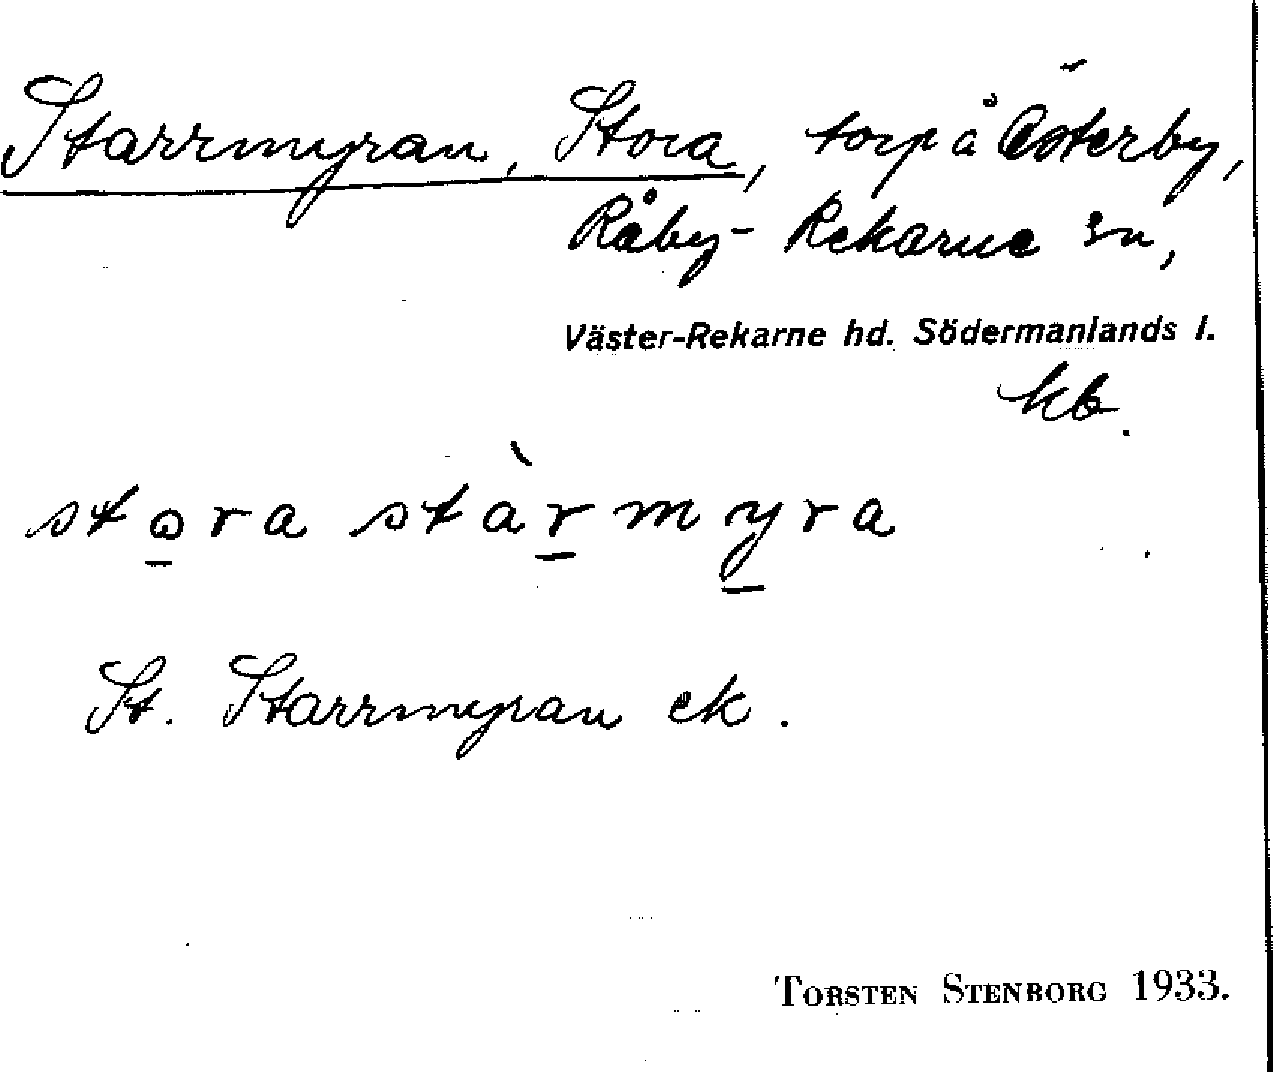 Starrmyran, Stora, torp å Österby,
Råby-Rekarne sn,
Väster-Rekarne hd. Södermanlands l.
kb.
stora stàrmyra
St. Starrmyran ek.
TORSTEN STENBORG 1933.